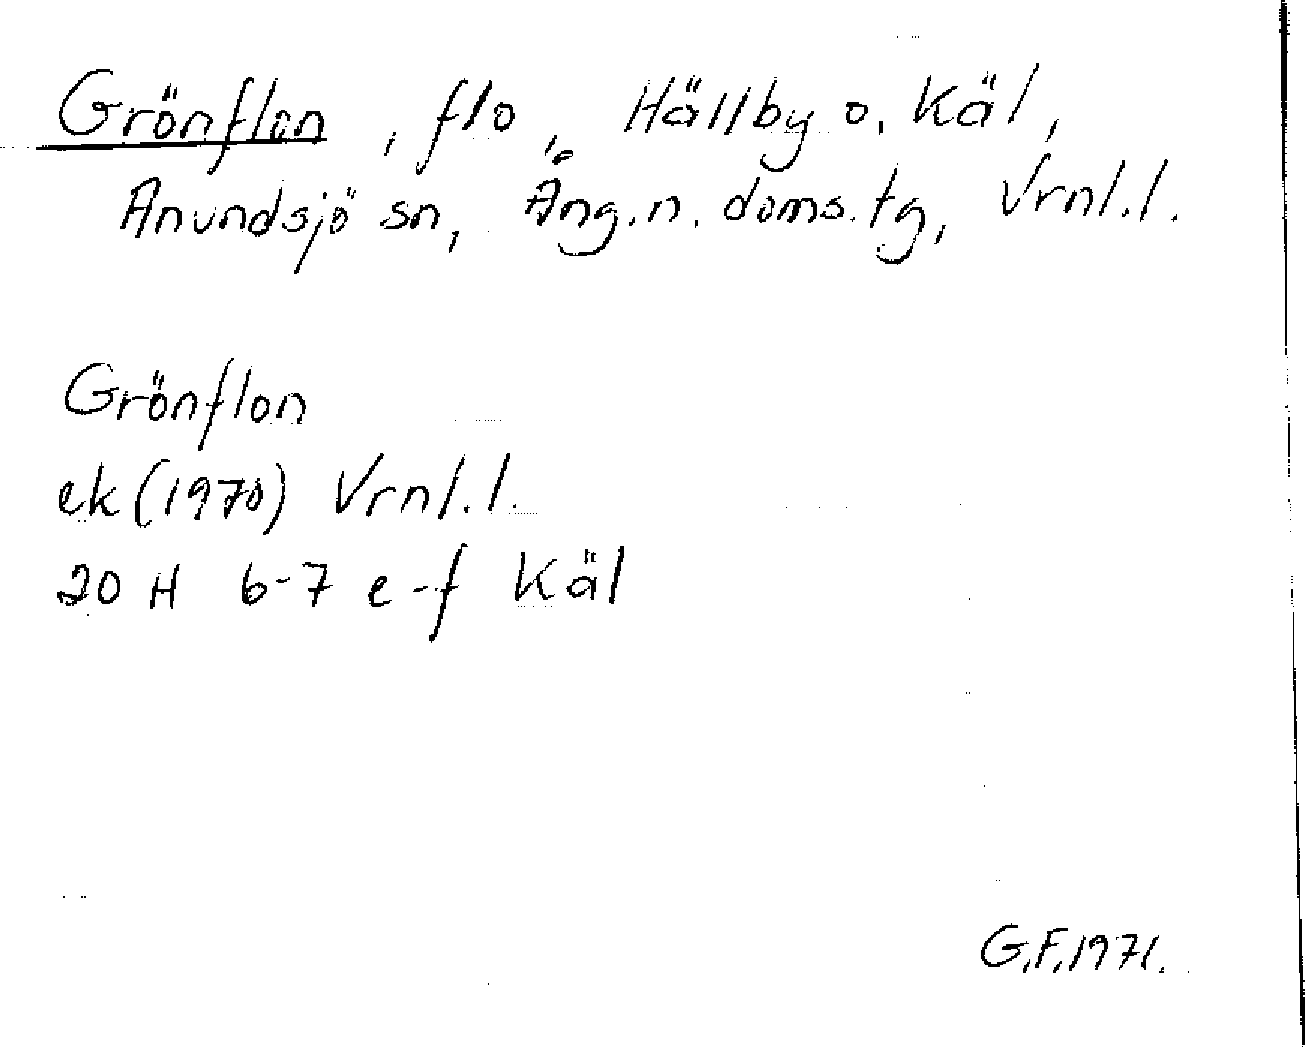 Grönflon, flo, Hällby o. Käl,
Anundsjö sn, Ång.n. doms.tg, Vrnl.l.
Grönflon
ek (1970) Vrnl.l.
20 H 6-7 e-f Käl
G.F.1971.